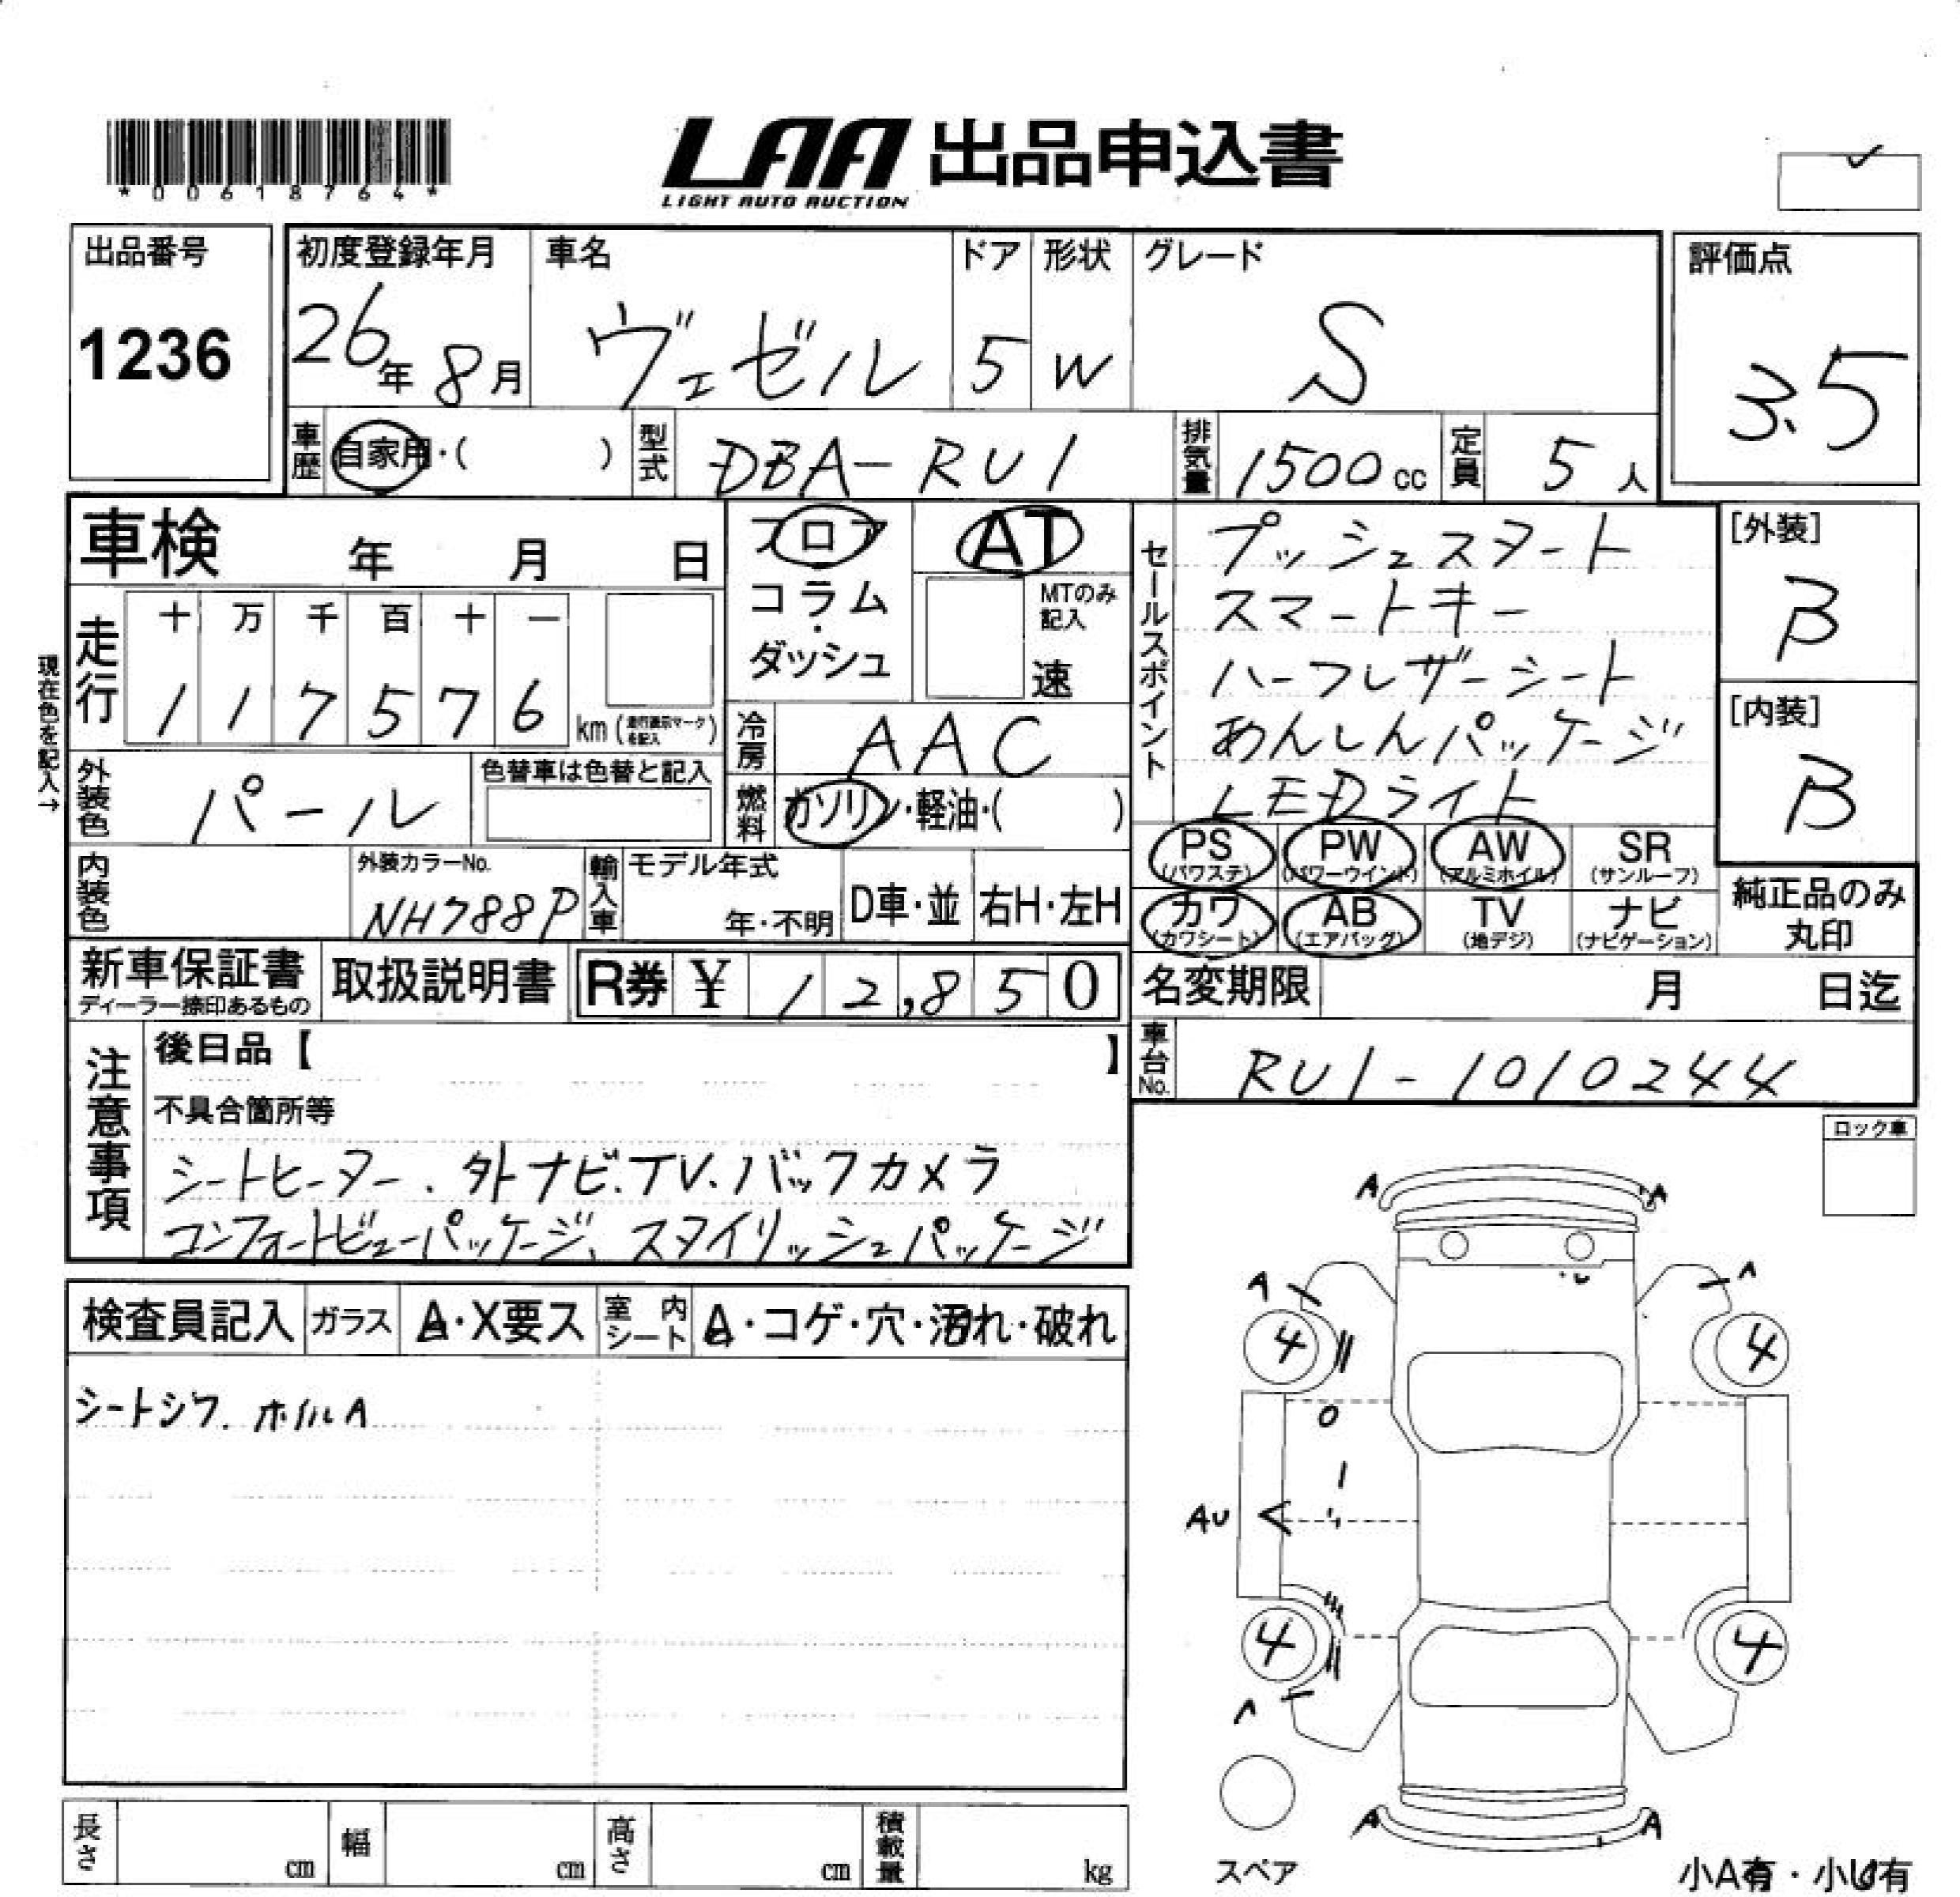 *00618764*
LAA 出品申込書
LIGHT AUTO AUCTION
出品番号
1236
初度登録年月
26年 8月
車名
ヴェゼル
ドア
5
形状
W
グレード
S
評価点
3.5
車歴 自家用・( )
型式 DBA-RU1
排気量 1500 cc
定員 5 人
車検 年 月 日
フロア
コラム
・
ダッシュ
AT
MTのみ
記入
速
セールスポイント
プッシュスタート
スマートキー
ハーフレザーシート
あんしんパッケージ
LEDライト
[外装]
B
[内装]
B
現在色を記入→
走行
十 万 千 百 十 一
1 1 7 5 7 6 km (走行表示マークを記入)
冷房 AAC
外装色 パール
色替車は色替と記入
燃料 ガソリン・軽油・( )
PS (パワステ)
PW (パワーウインド)
AW (アルミホイル)
SR (サンルーフ)
カワ (カワシート)
AB (エアバッグ)
TV (地デジ)
ナビ (ナビゲーション)
純正品のみ
丸印
内装色
外装カラーNo.
NH788P
輸入車
モデル年式
年・不明
D車・並
右H・左H
新車保証書
ディーラー捺印あるもの
取扱説明書
R券 ¥ 12,850
名変期限 月 日迄
車台No. RU1-1010244
注意事項
後日品【 】
不具合箇所等
シートヒーター、外ナビ、TV、バックカメラ
コンフォートビューパッケージ、スタイリッシュパッケージ
ロック車
検査員記入
ガラス A・X要ス
室内シート A・コゲ・穴・汚れ・破れ
シートシワ、ホイルA
A A
A A
4 4
AU
4 4
A
A A
スペア
長さ cm
幅 cm
高さ cm
積載量 kg
小A有・小U有